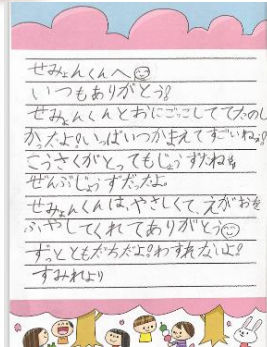 せみょんくんへ
いつもありがとう!
せみょんくんとおにごっこしててたのし
かったよ!いっぱいつかまえてすごいね!
こうさくがとってもじょうずだね
ぜんぶじょうずだったよ。
せみょんくんは、やさしくて、えがおを
ふやしてくれてありがとう
ずっとともだちだよ!わすれないよ!
すみれより